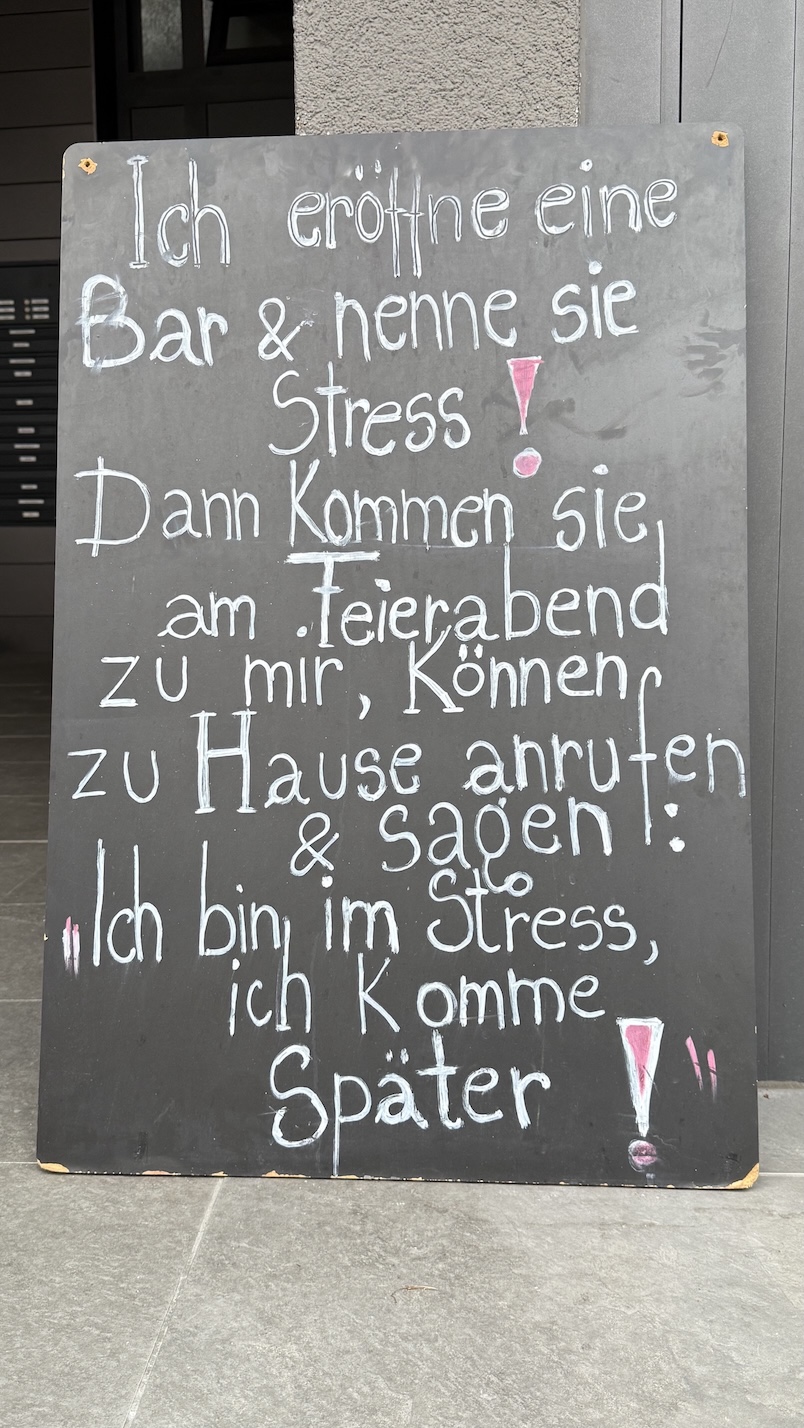 Ich eröffne eine
Bar & nenne sie
Stress!
Dann Kommen sie
am Feierabend
zu mir, Können
zu Hause anrufen
& sagen:
"Ich bin im Stress,
ich Komme
Später!"